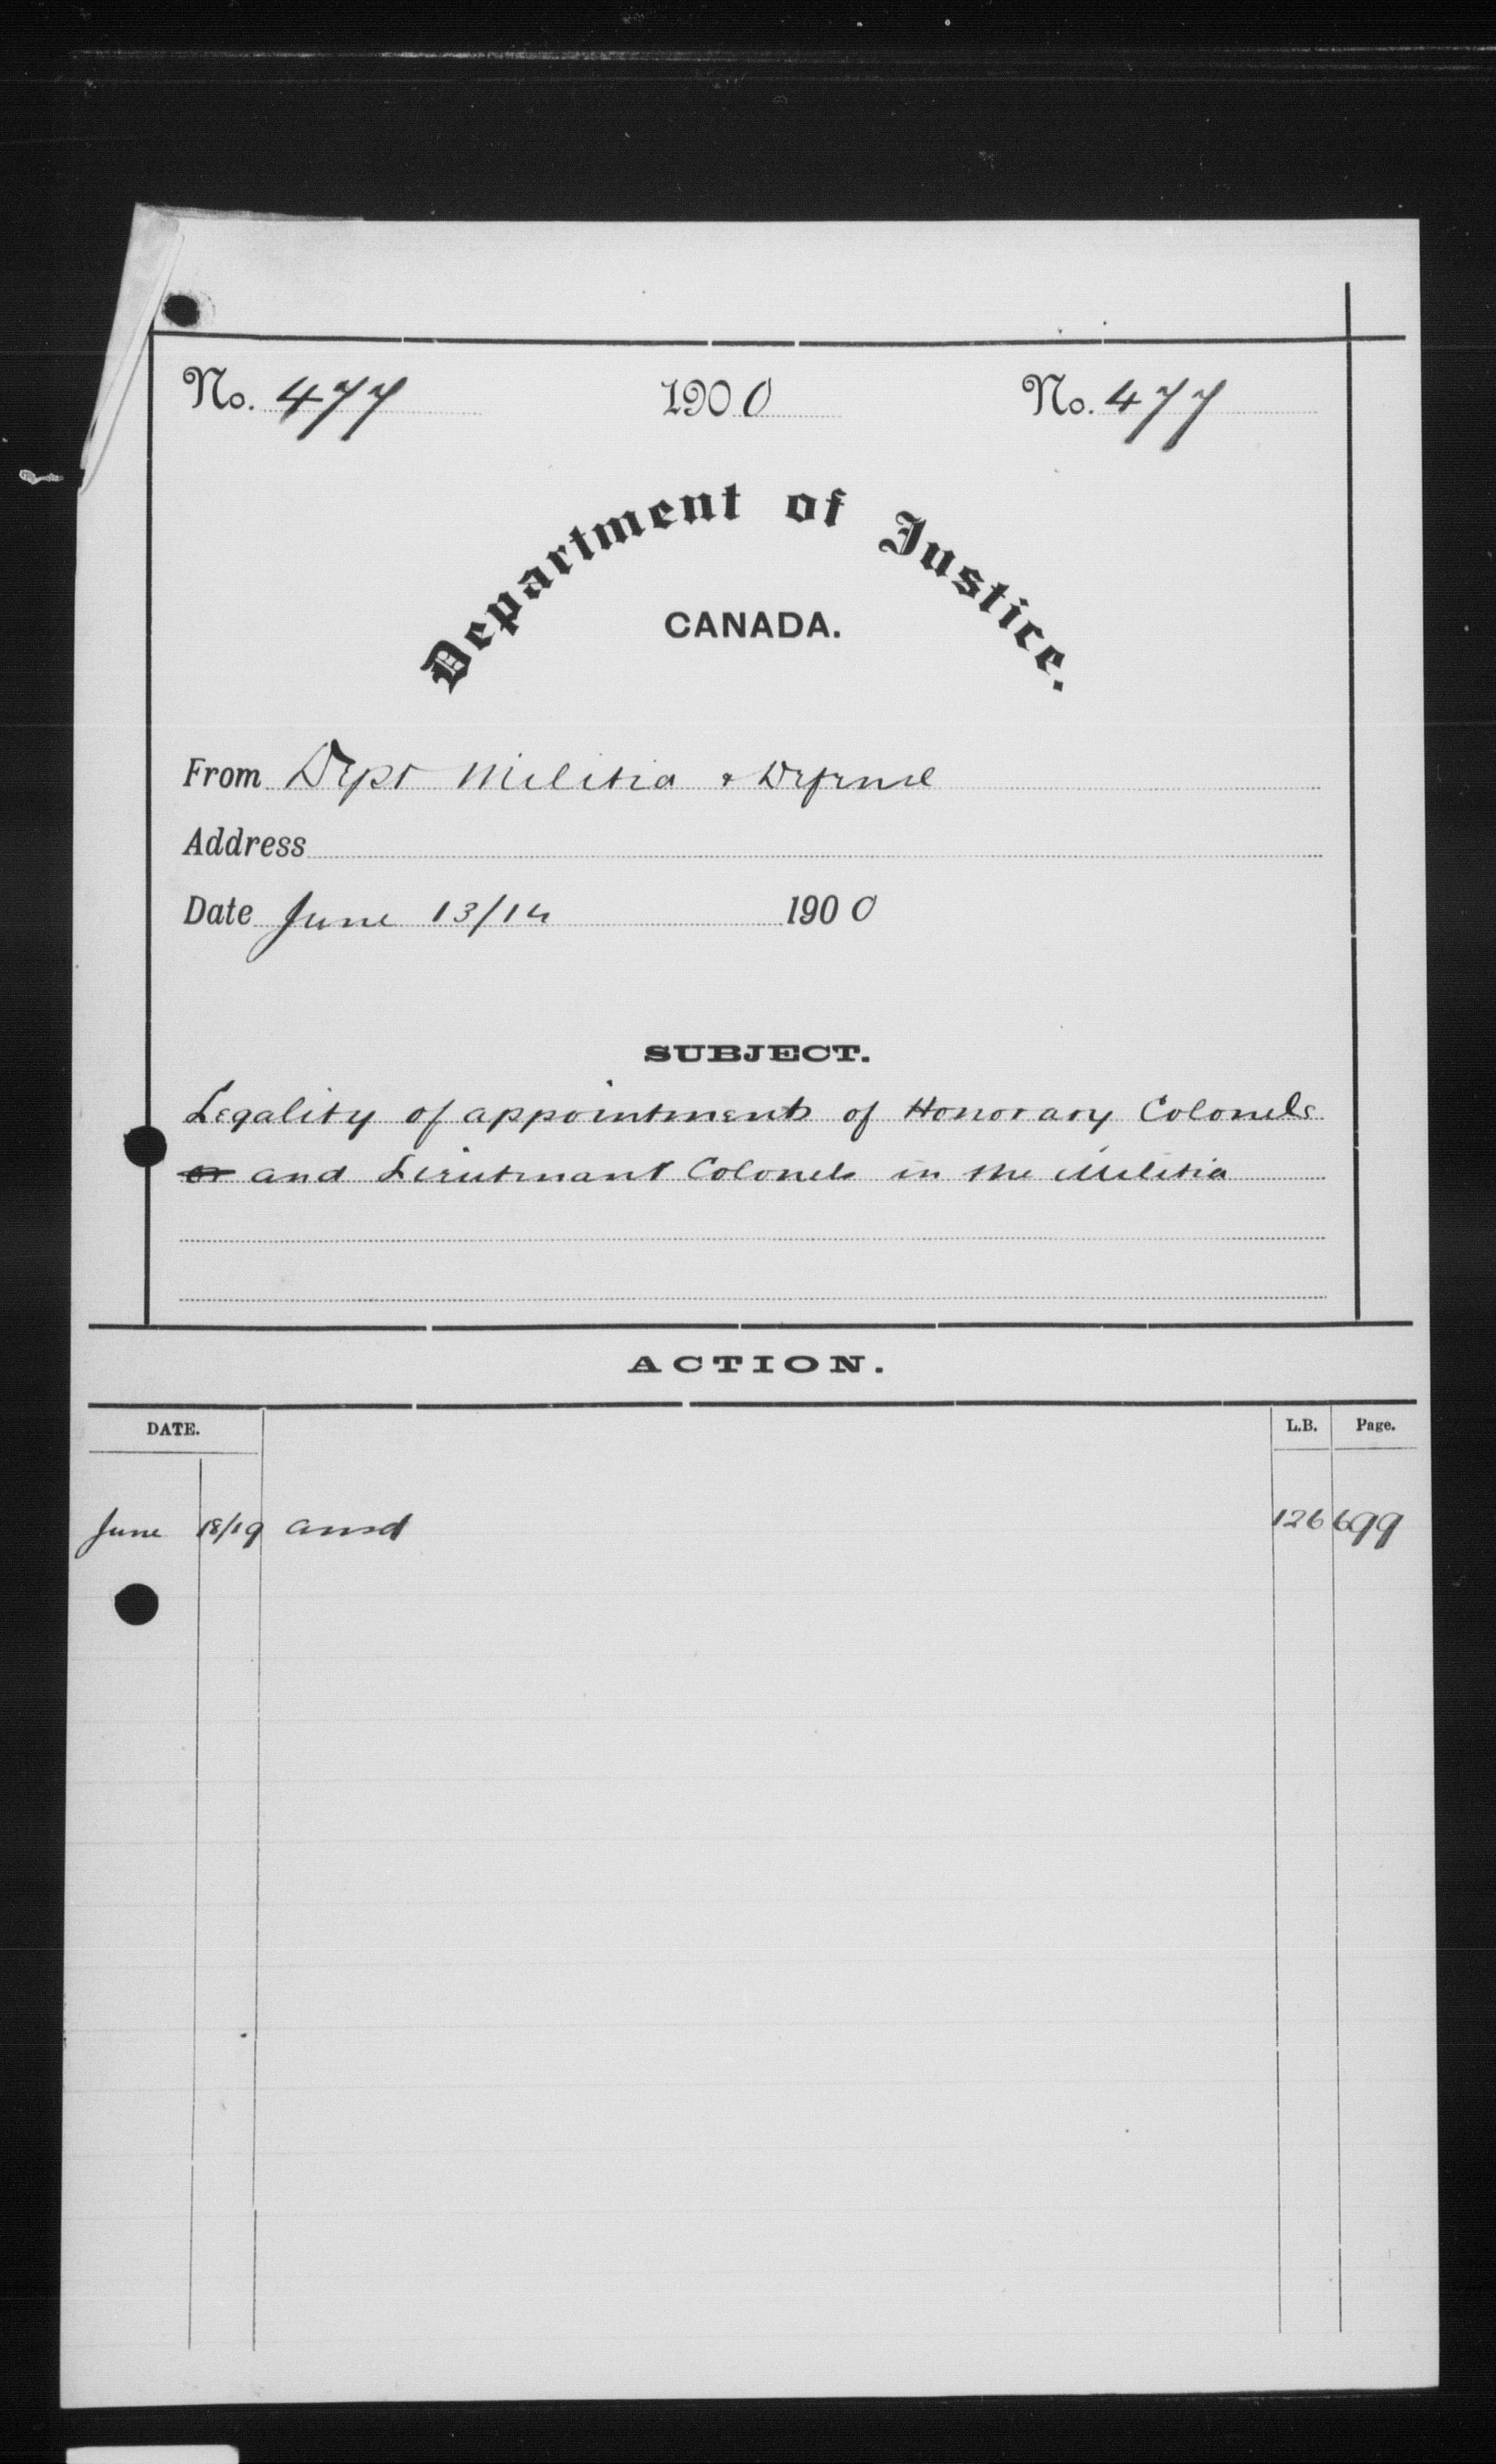 No. 477 1900 No. 477
Department of Justice.
CANADA.
From Dept Militia & Defence
Address
Date June 13/14 1900
SUBJECT.
Legality of appointments of Honorary Colonels
or and Lieutenant Colonels in the Militia
ACTION.
DATE. L.B. Page.
June 18/19 ansd 126 699